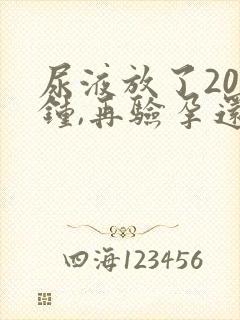 尿液放了20
鐘,再驗孕還
四海123456